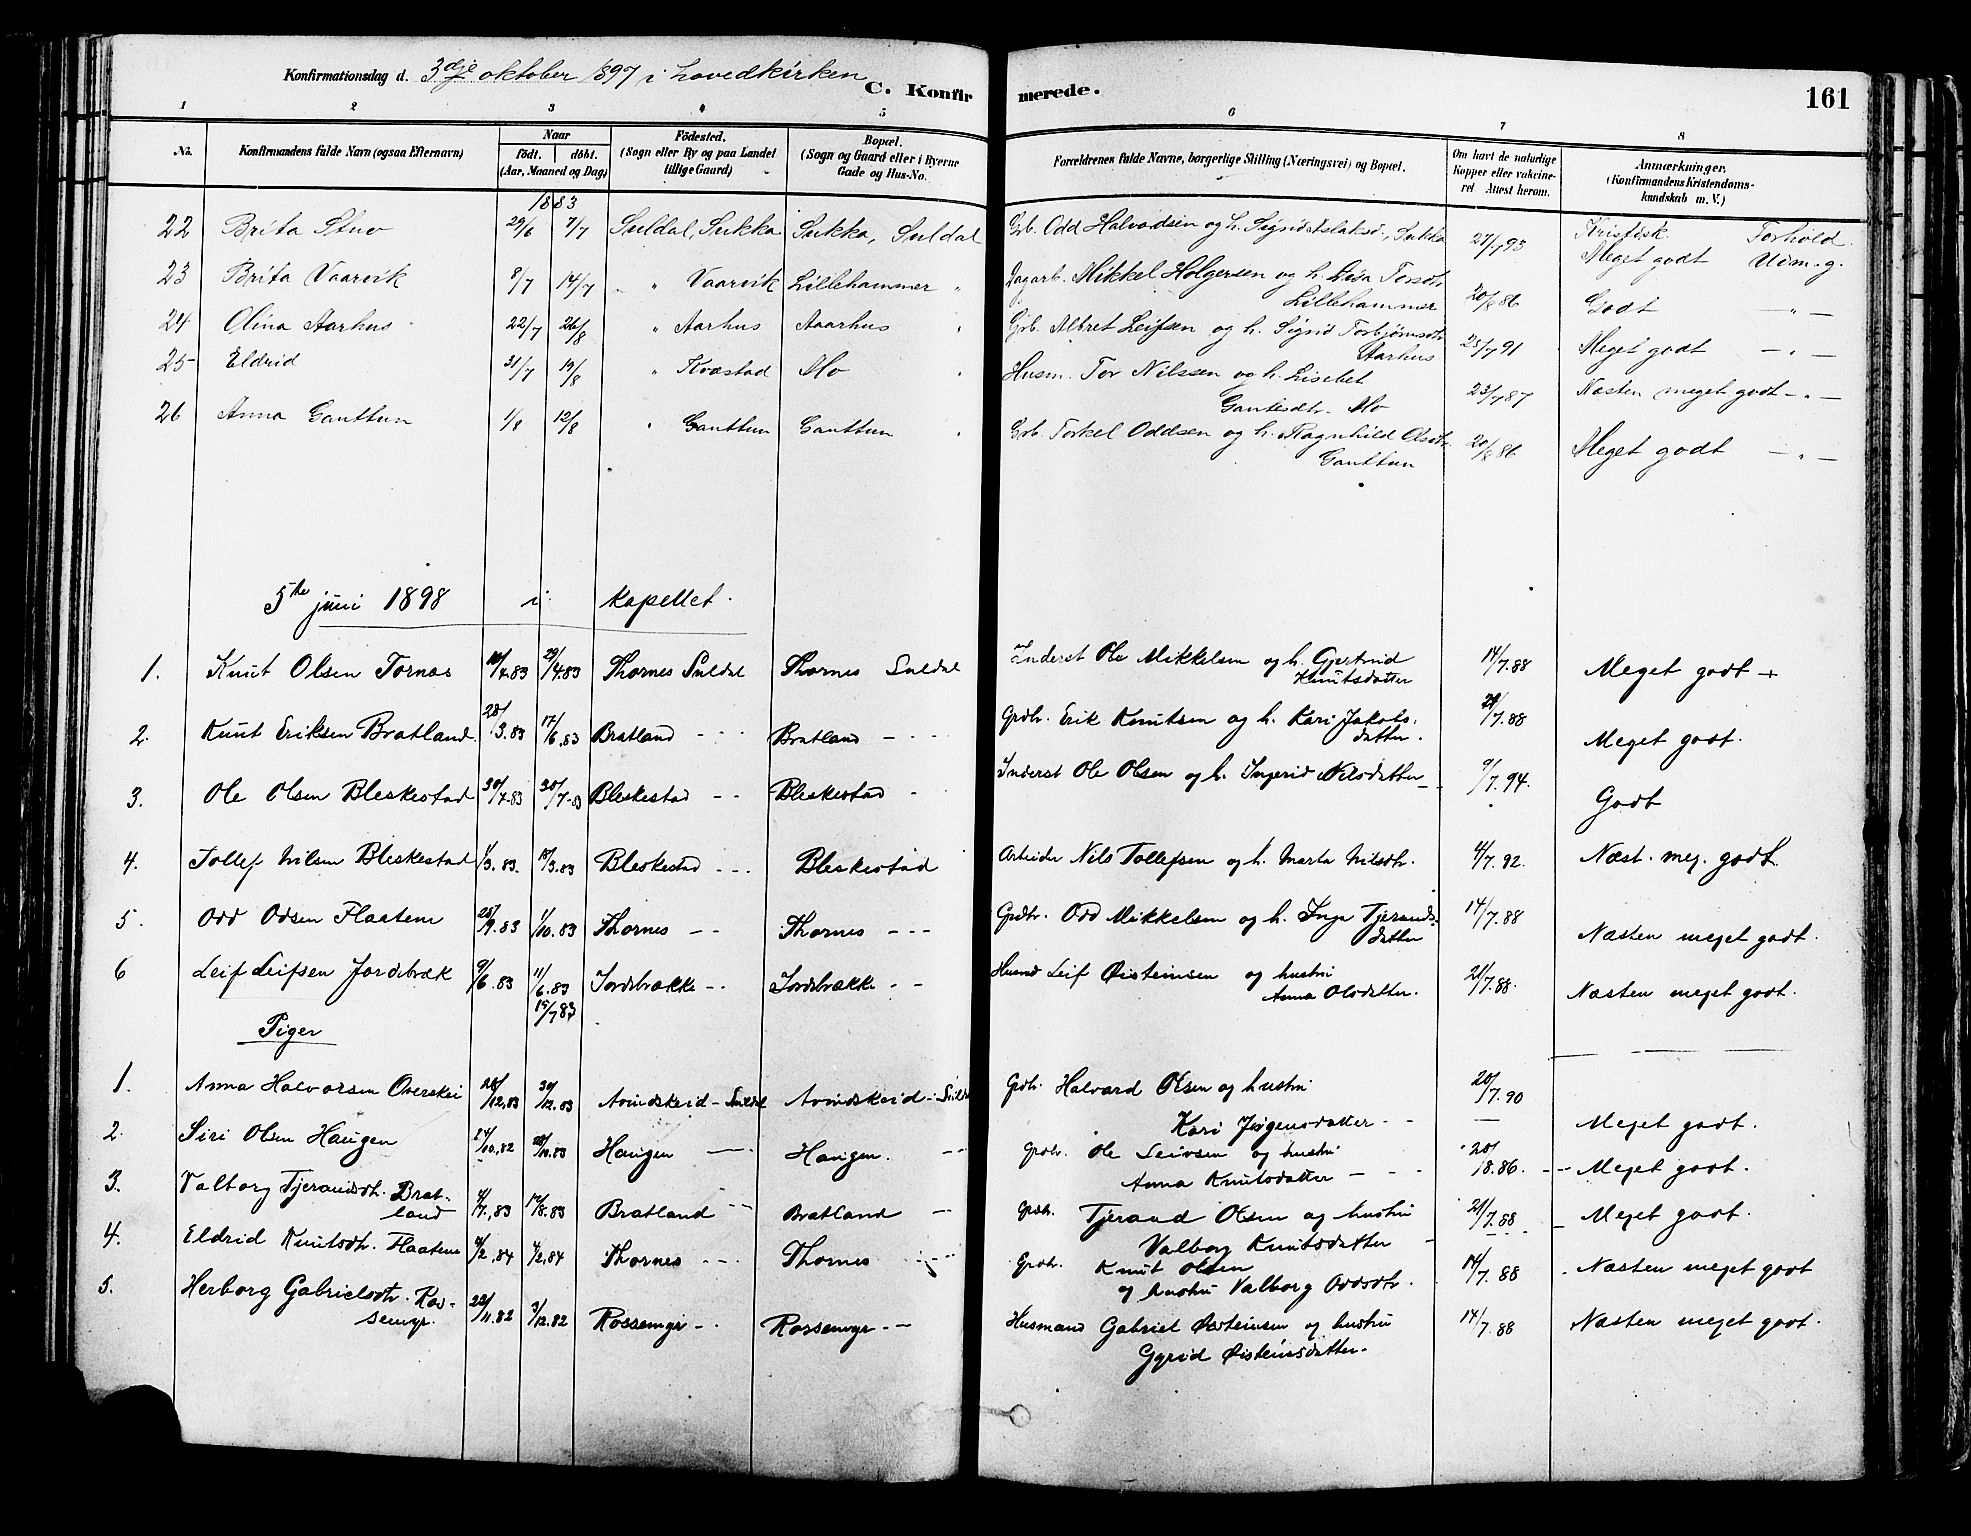 Konfirmationsdag d. 3dje oktober 1897 i hovedkirken
C. Konfirmerede.
161
1 2 3 4 5 6 7 8
No. Konfirmandens fulde Navn (ogsaa Efternavn) Naar födt. döbt. (Aar, Maaned og Dag) Födested. (Sogn eller By og paa Landet tillige Gaard) Bopæl. (Sogn og Gaard eller i Byerne Gade og Hus-No. Forældrenes fulde Navne, borgerlige Stilling (Næringsvei) og Bopæl. Om havt de naturlige Kopper eller vakcineret Attest herom. Anmærkninger. (Konfirmandens Kristendomskundskab m. V.)
1883
Kristdsk. Forhold.
22 Brita Stuv 29/6 7/7 Suldal, Sukka Sukka, Suldal Grb. Odd Halvordsen og h. Sigrid Aslaksd., Sukka 27/7 93 Meget godt Udm. g.
23 Brita Vaarvik 8/7 14/7 " Vaarvik Lillehammer " Dagarb. Mikkel Holgersen og h. Lisa Torsdtr
Lillehammer 20/8 86 Godt — " —
24 Olina Aarhus 22/7 26/8 " Aarhus Aarhus " Grb. Albret Leifsen og h. Sigrid Torbjørnsdtr
Aarhus 25/7 91 Meget godt — " —
25 Eldrid 31/7 19/8 " Kvæstad Mo " Husm. Tor Nilssen og h. Lisebet
Gautesdtr. Mo 23/7 87 Næsten meget godt — " —
26 Anna Gauttun 1/8 12/8 " Gauttun Gauttun " Grb. Torkel Oddsen og h. Ragnhild Olsdtr.
Gauttun 20/8 86 Meget godt — " —
5te juni 1898 i kapellet.
1. Knut Olsen Tornæs /4.83 29/4.83 Thornes Suldal Thornes Suldal Inderst Ole Mikkelsen og h. Gjertrud
Knutsdatter 14/7.88 Meget godt +
2. Knut Eriksen Bratland 28/3.83 17/6.83 Bratland - - - Bratland - - - Grdbr. Erik Knutsen og h. Kari Jakobs-
datter. 21/7.88 Meget godt.
3. Ole Olsen Bleskestad 30/4.83 20/7.83 Bleskestad - - Bleskestad - Inderst Ole Olsen og h. Ingerid Nilsdatter - - 9/7.94. Godt
4. Tollef Nilsen Bleskestad 1/3.83. 18/3.83 Bleskestad - - - Bleskestad Arbeider Nils Tollefsen og h. Marta Nilsdtr. 4/7.92. Næst. meg. godt.
5. Odd Odsen Flaatene 25/9.83 1/10.83 Thornes - - Thornes - - - Grdbr. Odd Mikkelsen og h. Inga Tjerands-
datter 14/7.88 Næsten meget godt.
6 Leif Leifsen Jordebræk 9/6.83 11/6.83 15/7 83 Jordebrække - - Jordebrække - - Husmd Leif Øisteinsen og hustru
Anna Olsdatter. 21/7.88. Næsten meget godt.
Piger
1. Anna Halvorsen Overskei 26/12.83 30/12.83 Avindskeid - Suldal Avindskeid - Suldal Grdbr. Halvard Olsen og hustru
Kari Jørgensdatter - - 20/7.90 Meget godt.
2. Siri Olsen Haugen 14/10.82 28/10.83 Haugen — Haugen. - - Grdbr. Ole Seivsen og hustru
Anna Knutsdatter - - - 20/8.86. - - Meget godt.
3. Valborg Tjerandsdt. Brat-
land 4/7.,83 12/8.83 Bratland - - Bratland - - Grdbr. Tjerand Olsen og hustru
Valborg Knutsdatter - 21/7.88 - Meget godt.
4. Eldrid Knutsdtr. Flaatene 4/2.84 4/2.84 Thornes - - - Thornes - - - Grdbr. Knut Olsen
og hustru Valborg Oddsdtr. 14/7.88 . Næsten meget godt
5. Herborg Gabrielsdtr. Ros-
semyr. 22/11.82 3/12.82 Rossemyr - - Rossemyr - - Husmand Gabriel Øisteinsen og hustru
Gyrid Øisteinsdatter. 14/7.88 Næsten meget godt.